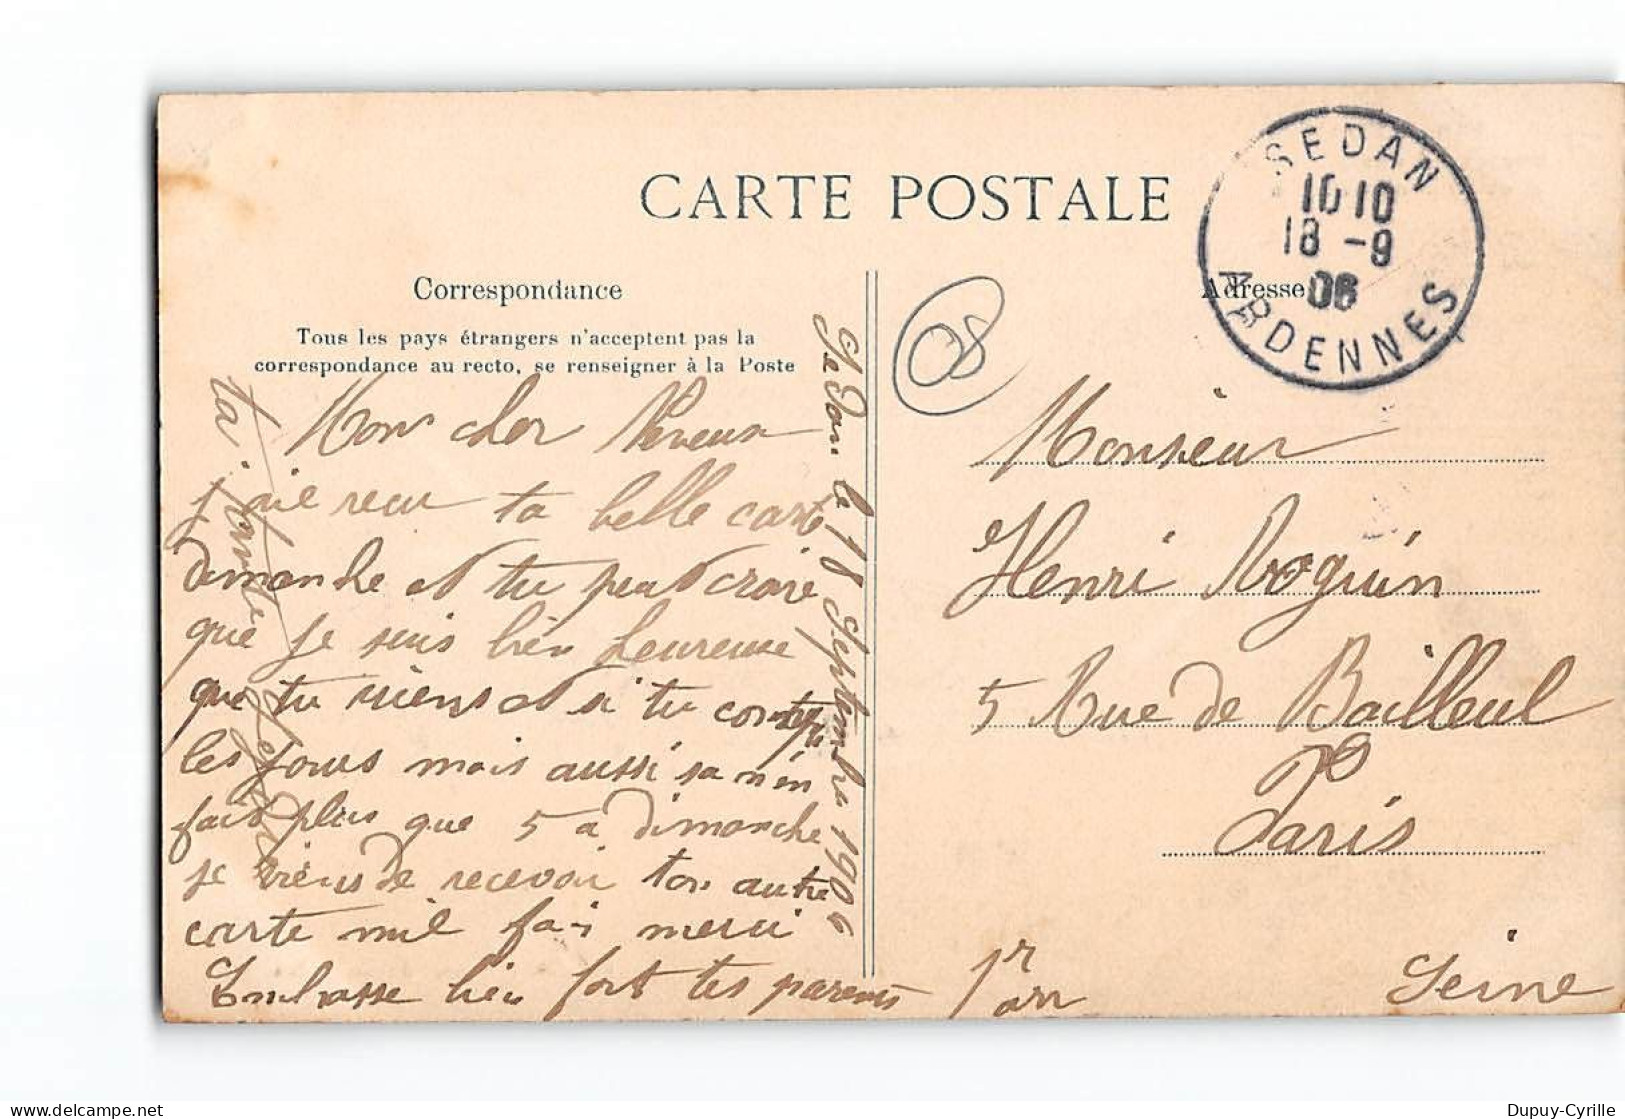 CARTE POSTALE
SEDAN
10 10
18 -9
06
ARDENNES
Correspondance
Tous les pays étrangers n'acceptent pas la
correspondance au recto, se renseigner à la Poste
Adresse
08
Sedan le 18 Septembre 1906
Mon cher Neveux
j'ai recu ta belle carte
dimanche et tu peut croire
que je suis bien heureuse
que tu viens et si tu compte
les jours mais aussi sa n'en
fait plus que 5 a dimanche
je viens de recevoir ton autre
carte mil fois merci
Embrasse bien fort tes parents
ta tante
Monsieur
Henri Noguin
5 Rue de Bailleul
Paris
1r arr
Seine
Dupuy-Cyrille